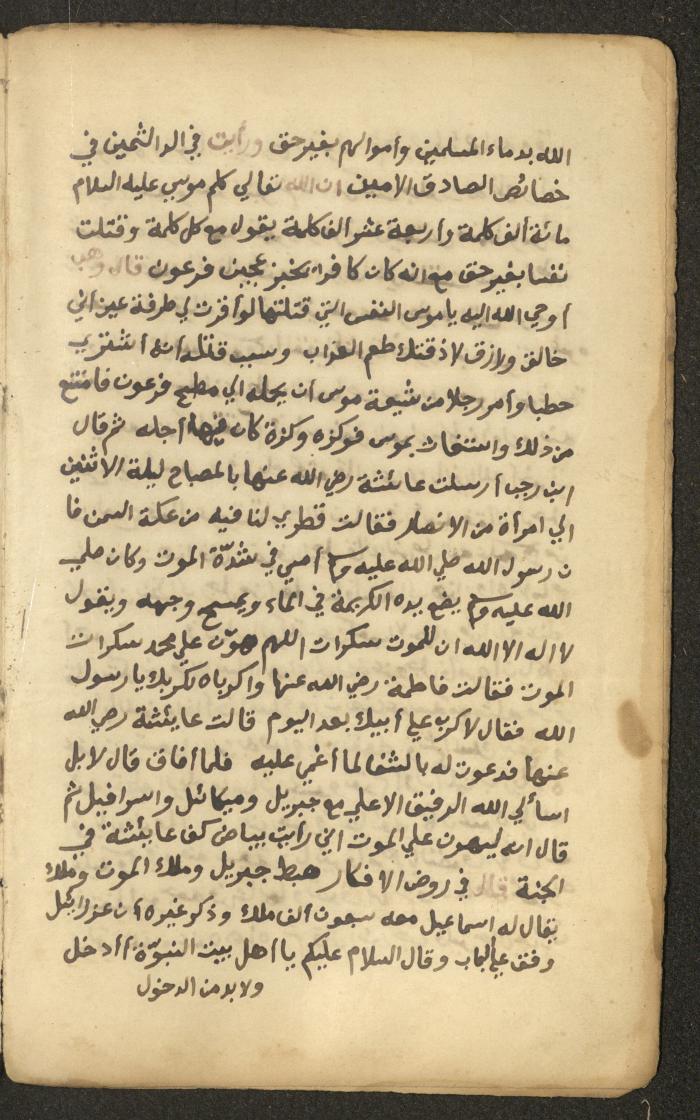 الله بدماء المسلمين وأموالهم بغير حق ورأيت في الدر الثمين في
خصائص الصادق الامين ان الله تعالي كلم موسي عليه السلام
مائة ألف كلمة وأربعة عشر الف كلمة يقول مع كل كلمة وقتلت
نفسا بغير حق مع انه كان كافرا خبز عجين فرعون قال وهب
أوحي الله اليه يا موسى النفس التي قتلتها لو أقرت لي طرفة عين أني
خالق ورازق لاذقتك طعم العذاب وسبب قتله أنه اشترى
حطبا وأمر رجلا من شيعة موسى أن يحمله الي مطبخ فرعون فامتنع
من ذلك واستغاث بموسى فوكزه وكزة كان فيها أجله ثم قال
ابن رجب أرسلت عائشة رضي الله عنها بالمصباح ليلة الاثنين
الي امرأة من الانصار فقالت قطري لنا فيه من عكة السمن فا
ن رسول الله صلي الله عليه وسلم أمسي في شدّة الموت وكان صلي
الله عليه وسلم يضع يده الكريمة في الماء ويمسح وجهه ويقول
لا اله الا الله ان للموت سكرات اللهم هوّن علي محمد سكرات
الموت فقالت فاطمة رضي الله عنها واكرباه لكربك يا رسول
الله فقال لا كرب علي أبيك بعد اليوم قالت عايشة رضي الله
عنها فدعوت له بالشفا لما أغمي عليه فلما أفاق قال لا بل
اسألي الله الرفيق الاعلي مع جبريل وميكائل واسرافيل ثم
قال انه ليهون علي الموت اني رأيت بياض كف عايشة في
الجنة قال في روض الافكار هبط جبريل وملك الموت وملك
يقال له اسماعيل معه سبعون ألف ملك وذكر غيره أن عزرائيل
وقف علي الباب وقال السلام عليكم يا أهل بيت النبوّة أأدخل
ولا بد من الدخول